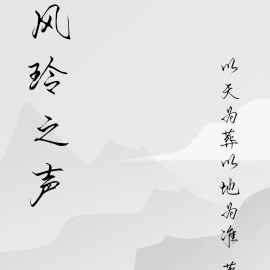 风玲之声
以天为葬以地为准